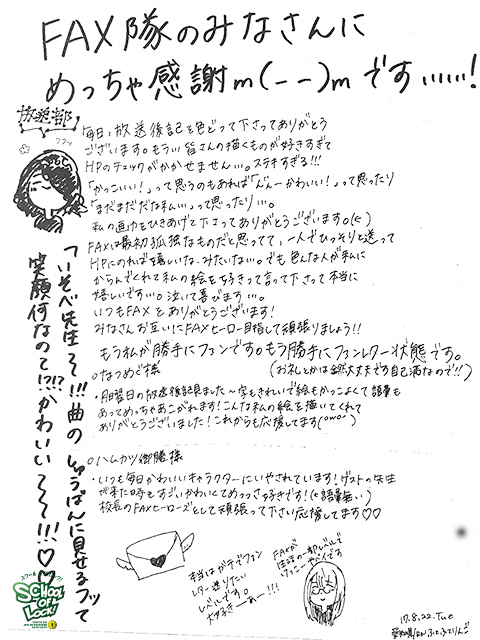 FAX隊のみなさんに
めっちゃ感謝m(--)mです……!
放送部
フフッ
毎日、放送後記を色どって下さってありがとう
ございます。もうい皆さんの描くものが好きすぎて
HPのチェックがかかせません…。ステキすぎる!!!
「かっこいい!」って思うのもあれば「んー かわいい!」って思ったり
「まだまだだな私…」って思ったり…。
私の画力をひきあげて下さってありがとうございます。
FAXは最初孤独なものだと思ってて、一人でひっそりと送って
HPにのれば嬉しいな、みたいな…。でも色んな人が私に
からんでくれて私の絵を好きって言って下さって本当に
嬉しいです…。泣いて喜びます…。
いつもFAXとありがとうございます!
みなさんお互いにFAXヒーロー目指して頑張りましょう!!
もう私が勝手にファンです。もう勝手にファンレター状態です。
(お礼とかは全然大丈夫です自己満なので!!)
○なつめぐ様
・月曜日の放送後記見ました〜字もきれいで絵もかっこよくて語彙も
あってめっちゃあこがれます!こんな私の絵を描いてくれて
ありがとうございました!これからも応援してます(oωo)
○ハムカツ御膳様
・いつも毎日かわいいキャラクターにいやされています!ゲストの先生
が来た時もすごいかわいくてめっっさ好きです!(←語彙無い)
校長のFAXヒーローズとして頑張って下さい応援してます♡♡
「いそべ先生〜!!!曲の しゅうばんに見せるフッて
笑顔何なので!?!?かわいい〜〜!!!♡♡
本当はガチでファン
レター送りたい
レベルです。
大好きーぁー!!!
FAXが
生活の一部レベルで
けっこーヤバイです
SCHOOL OF LOCK!
17.8.22.Tue